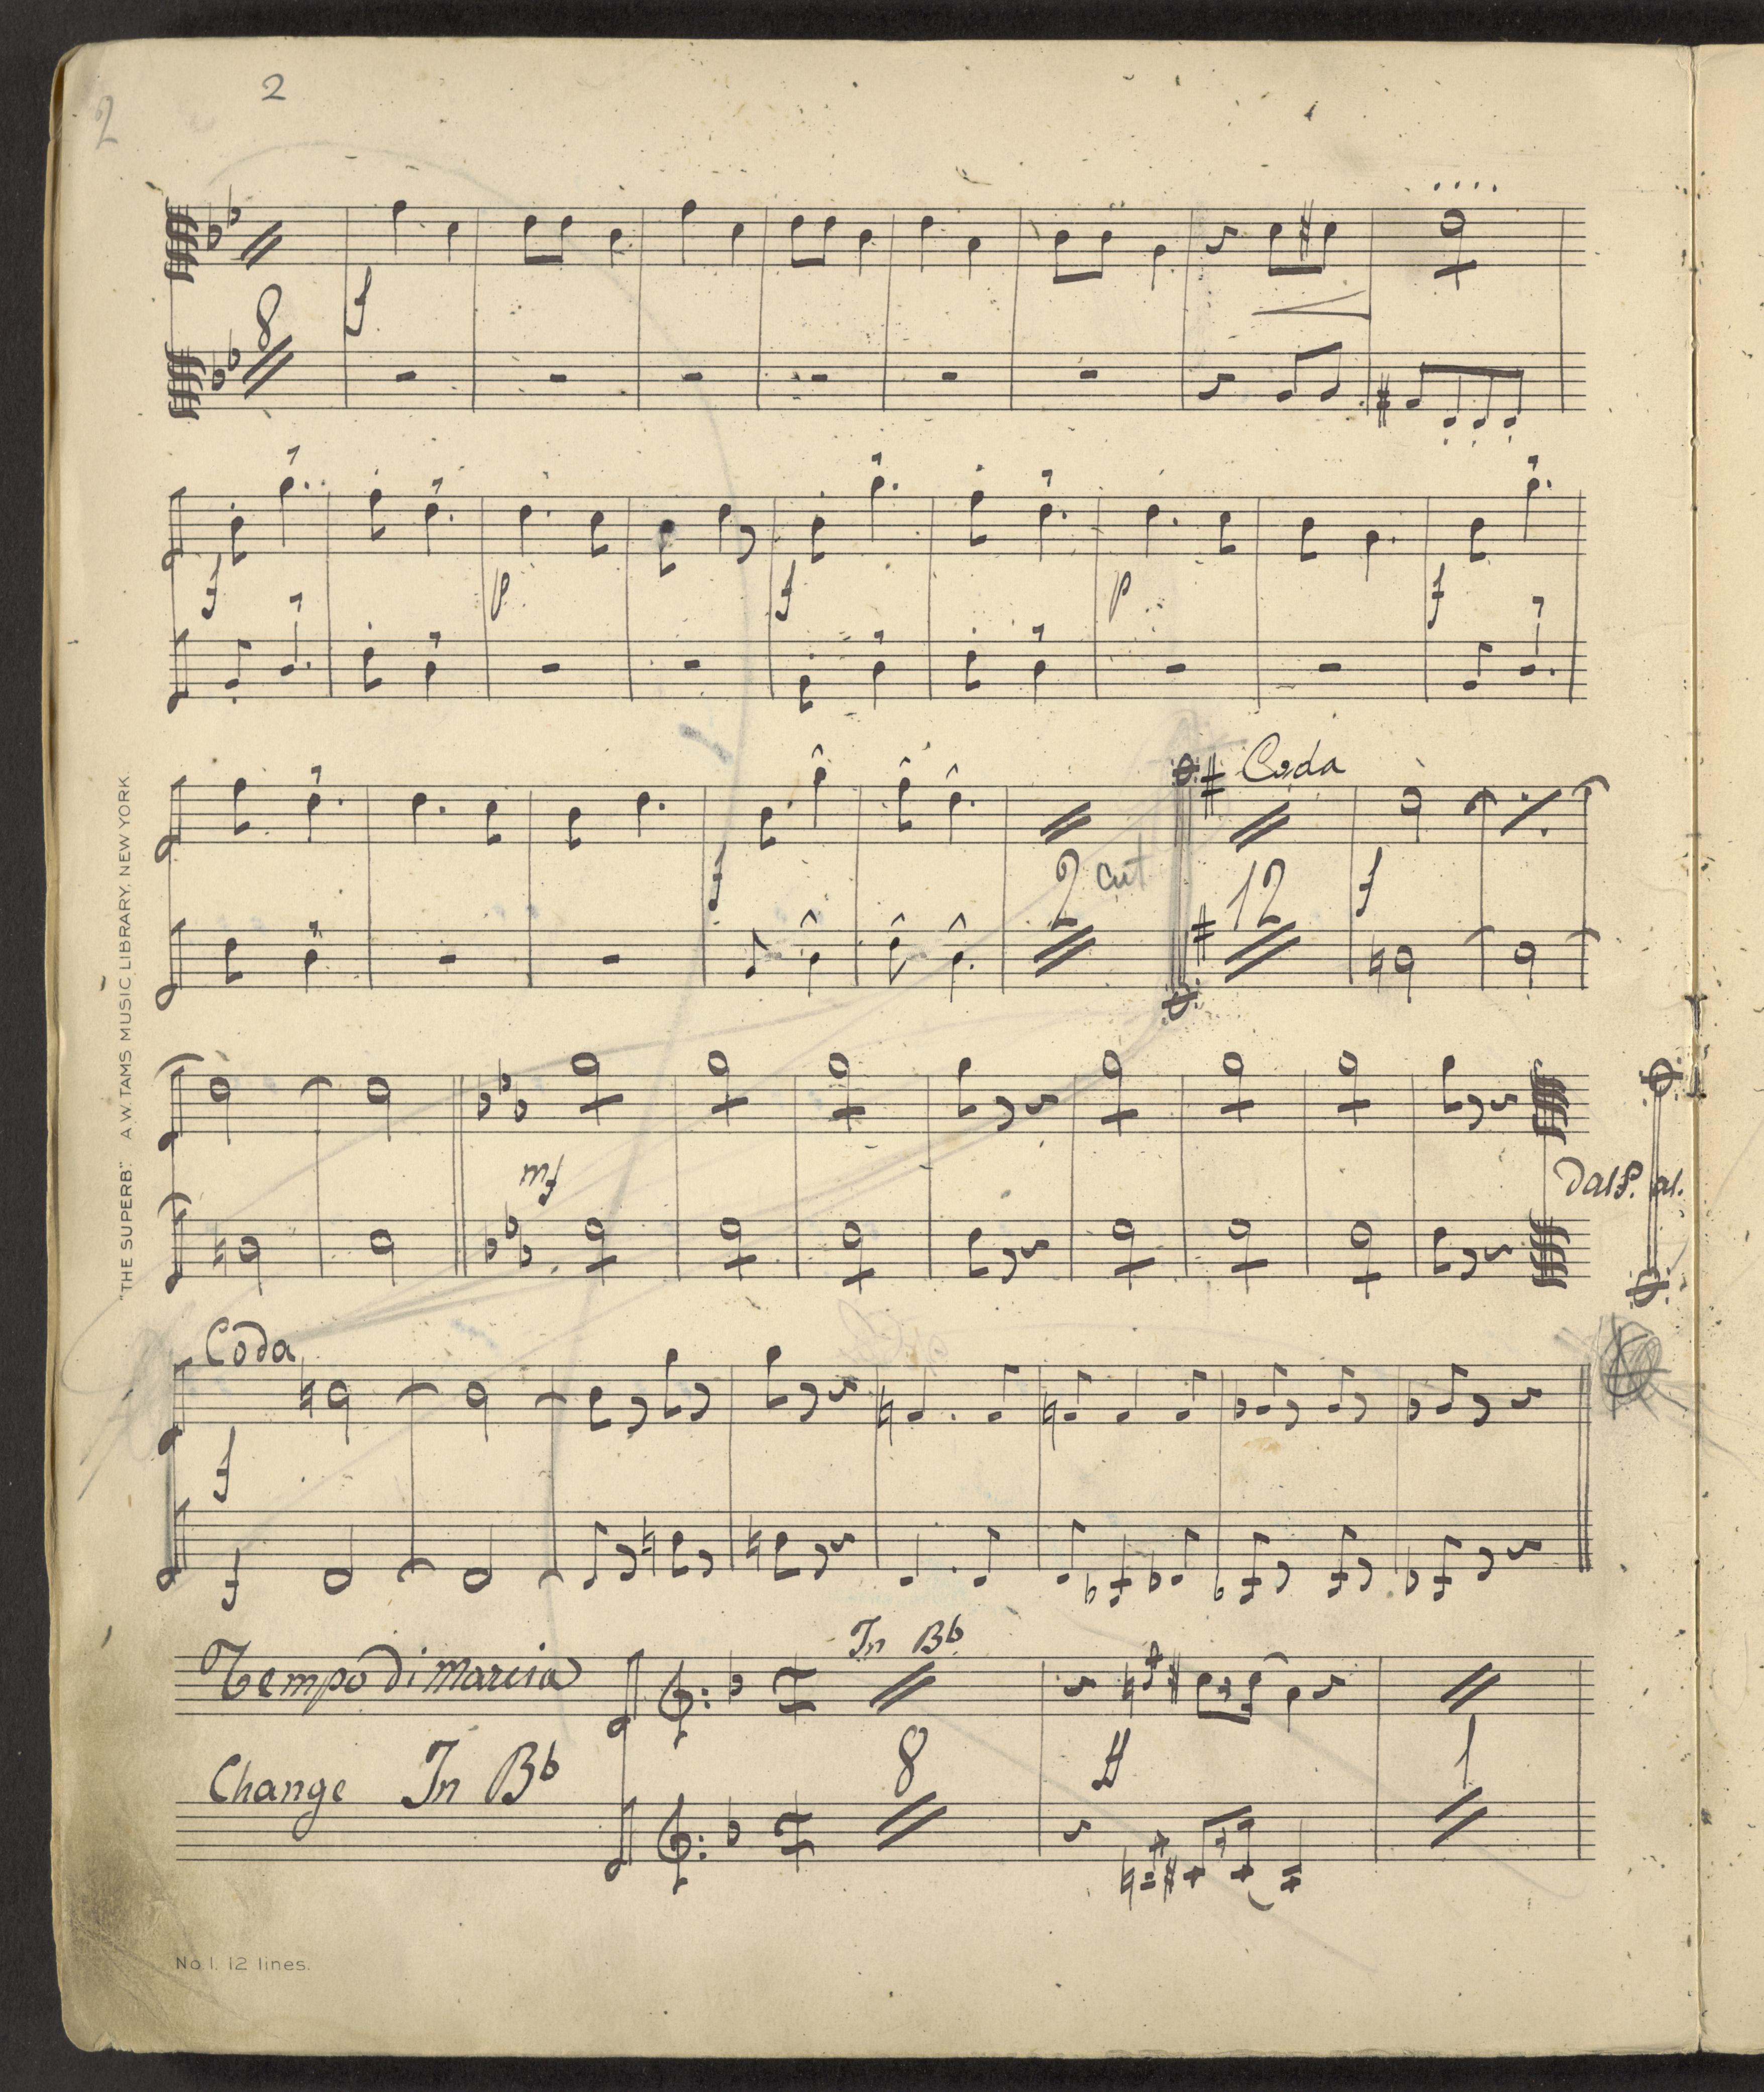 2
2
8
f
f p f p f
Coda
2 cut 12
f f
mf
Dal S. al.
Coda
f
f
In Bb
Tempo di Marcia
8 ff 1
Change In Bb
"THE SUPERB." A.W. TAMS MUSIC LIBRARY, NEW YORK.
No 1. 12 lines.